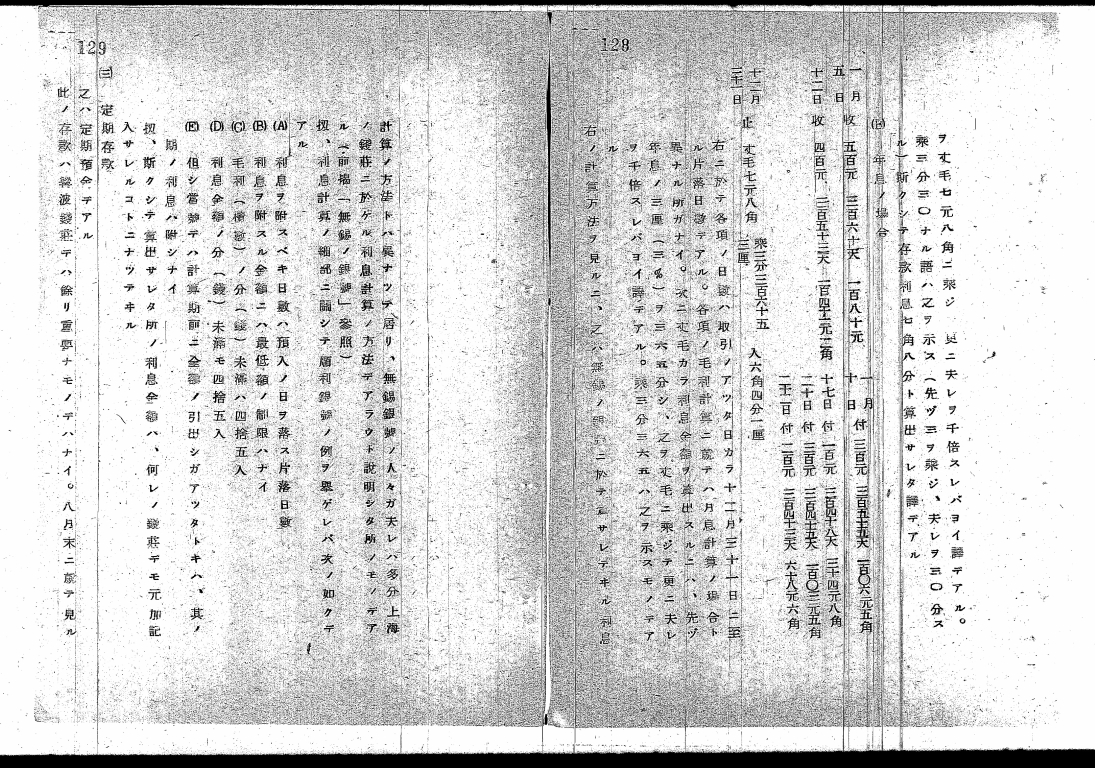 128
ヲ丈毛七元八角ニ乘ジ 更ニ夫レヲ千倍スレバヨイ譯デアル。
乘三分三〇ナル語ハ之ヲ示ス(先ヅ三ヲ乘ジ、夫レヲ三〇分ス
ル)斯クシテ存款利息七角八分ト算出サレタ譯デアル
年息ノ場合
一月五日 收 五百元 三百六十天 一百八十元
十二日 收 四百元 三百五十三天 一百四十一元二角
一月十日 付 三百元 三百五十五天 一百〇六元五角
十七日 付 一百元 三百四十八天 三十四元八角
二十日 付 三百元 三百四十五天 一百〇三元五角
二十二日 付 二百元 三百四十三天 六十八元六角
十二月三十一日 止 丈毛七元八角 乘三分三百六十五 三厘 入六角四分一厘
右ニ於テ各項ノ日數ハ取引ノアツタ日カラ十二月三十一日ニ至
ル片落日數デアル。各項ノ毛利計算ニ就テハ月息計算ノ場合ト
異ナル所ガナイ。次ニ丈毛カラ利息金額ヲ算出スルニハ、先ヅ
年息ノ三厘(三%)ヲ三六五分シ、之ヲ丈毛ニ乘ジテ更ニ夫レ
ヲ千倍スレバヨイ譯デアル。乘三分三六五ハ之ヲ示スモノデア
ル
右ノ計算方法ヲ見ルニ、之ハ無錫ノ銀號ニ於テ サレテヰル利息
129
計算ノ方法トハ異ナツテ居リ、無錫銀號ノ人々ガ夫レハ多分上海
ノ錢莊ニ於ケル利息計算ノ方法デアラウト說明シタ所ノモノデア
ル(前揭「無錫ノ銀號」參照)
扨、利息計算ノ細部ニ關シテ順利錢號ノ例ヲ擧ゲレバ次ノ如クデ
アル
(A) 利息ヲ附スベキ日數ハ預入ノ日ヲ落ス片落日數
(B) 利息ヲ附スル金額ニハ最低額ノ制限ハナイ
(C) 毛利(積數)ノ分(錢)未滿ハ四捨五入
(D) 利息金額ノ分(錢)未滿モ四捨五入
(E) 但シ當號デハ計算期前ニ全額ノ引出シガアツタトキハ、其ノ
期ノ利息ハ附シナイ
扨、斯クシテ算出サレタ所ノ利息金額ハ、何レノ錢莊デモ元加記
入サレルコトニナツテヰル
(三) 定期存款
之ハ定期預金デアル
此ノ存款ハ寧波錢莊デハ餘リ重要ナモノデハナイ。八月末ニ就テ見ル